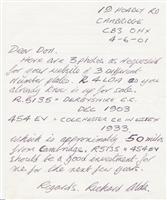 19 HOADLY RD
CAMBRIDGE
CB3 0HX
4-6-01
Dear Don.
Here are 3 photos as requested
for your website of 3 different
number plates. R 4 as you
already know is up for sale.
R.5135 - DERBYSHIRE C.C.
DEC 1903
454 EV - COLCHESTER CC IN ESSEX
1933
which is approximately 50 miles
from Cambridge. R5135 & 454 EV
should be a good investment for
me for the next few years.
Regards. Richard